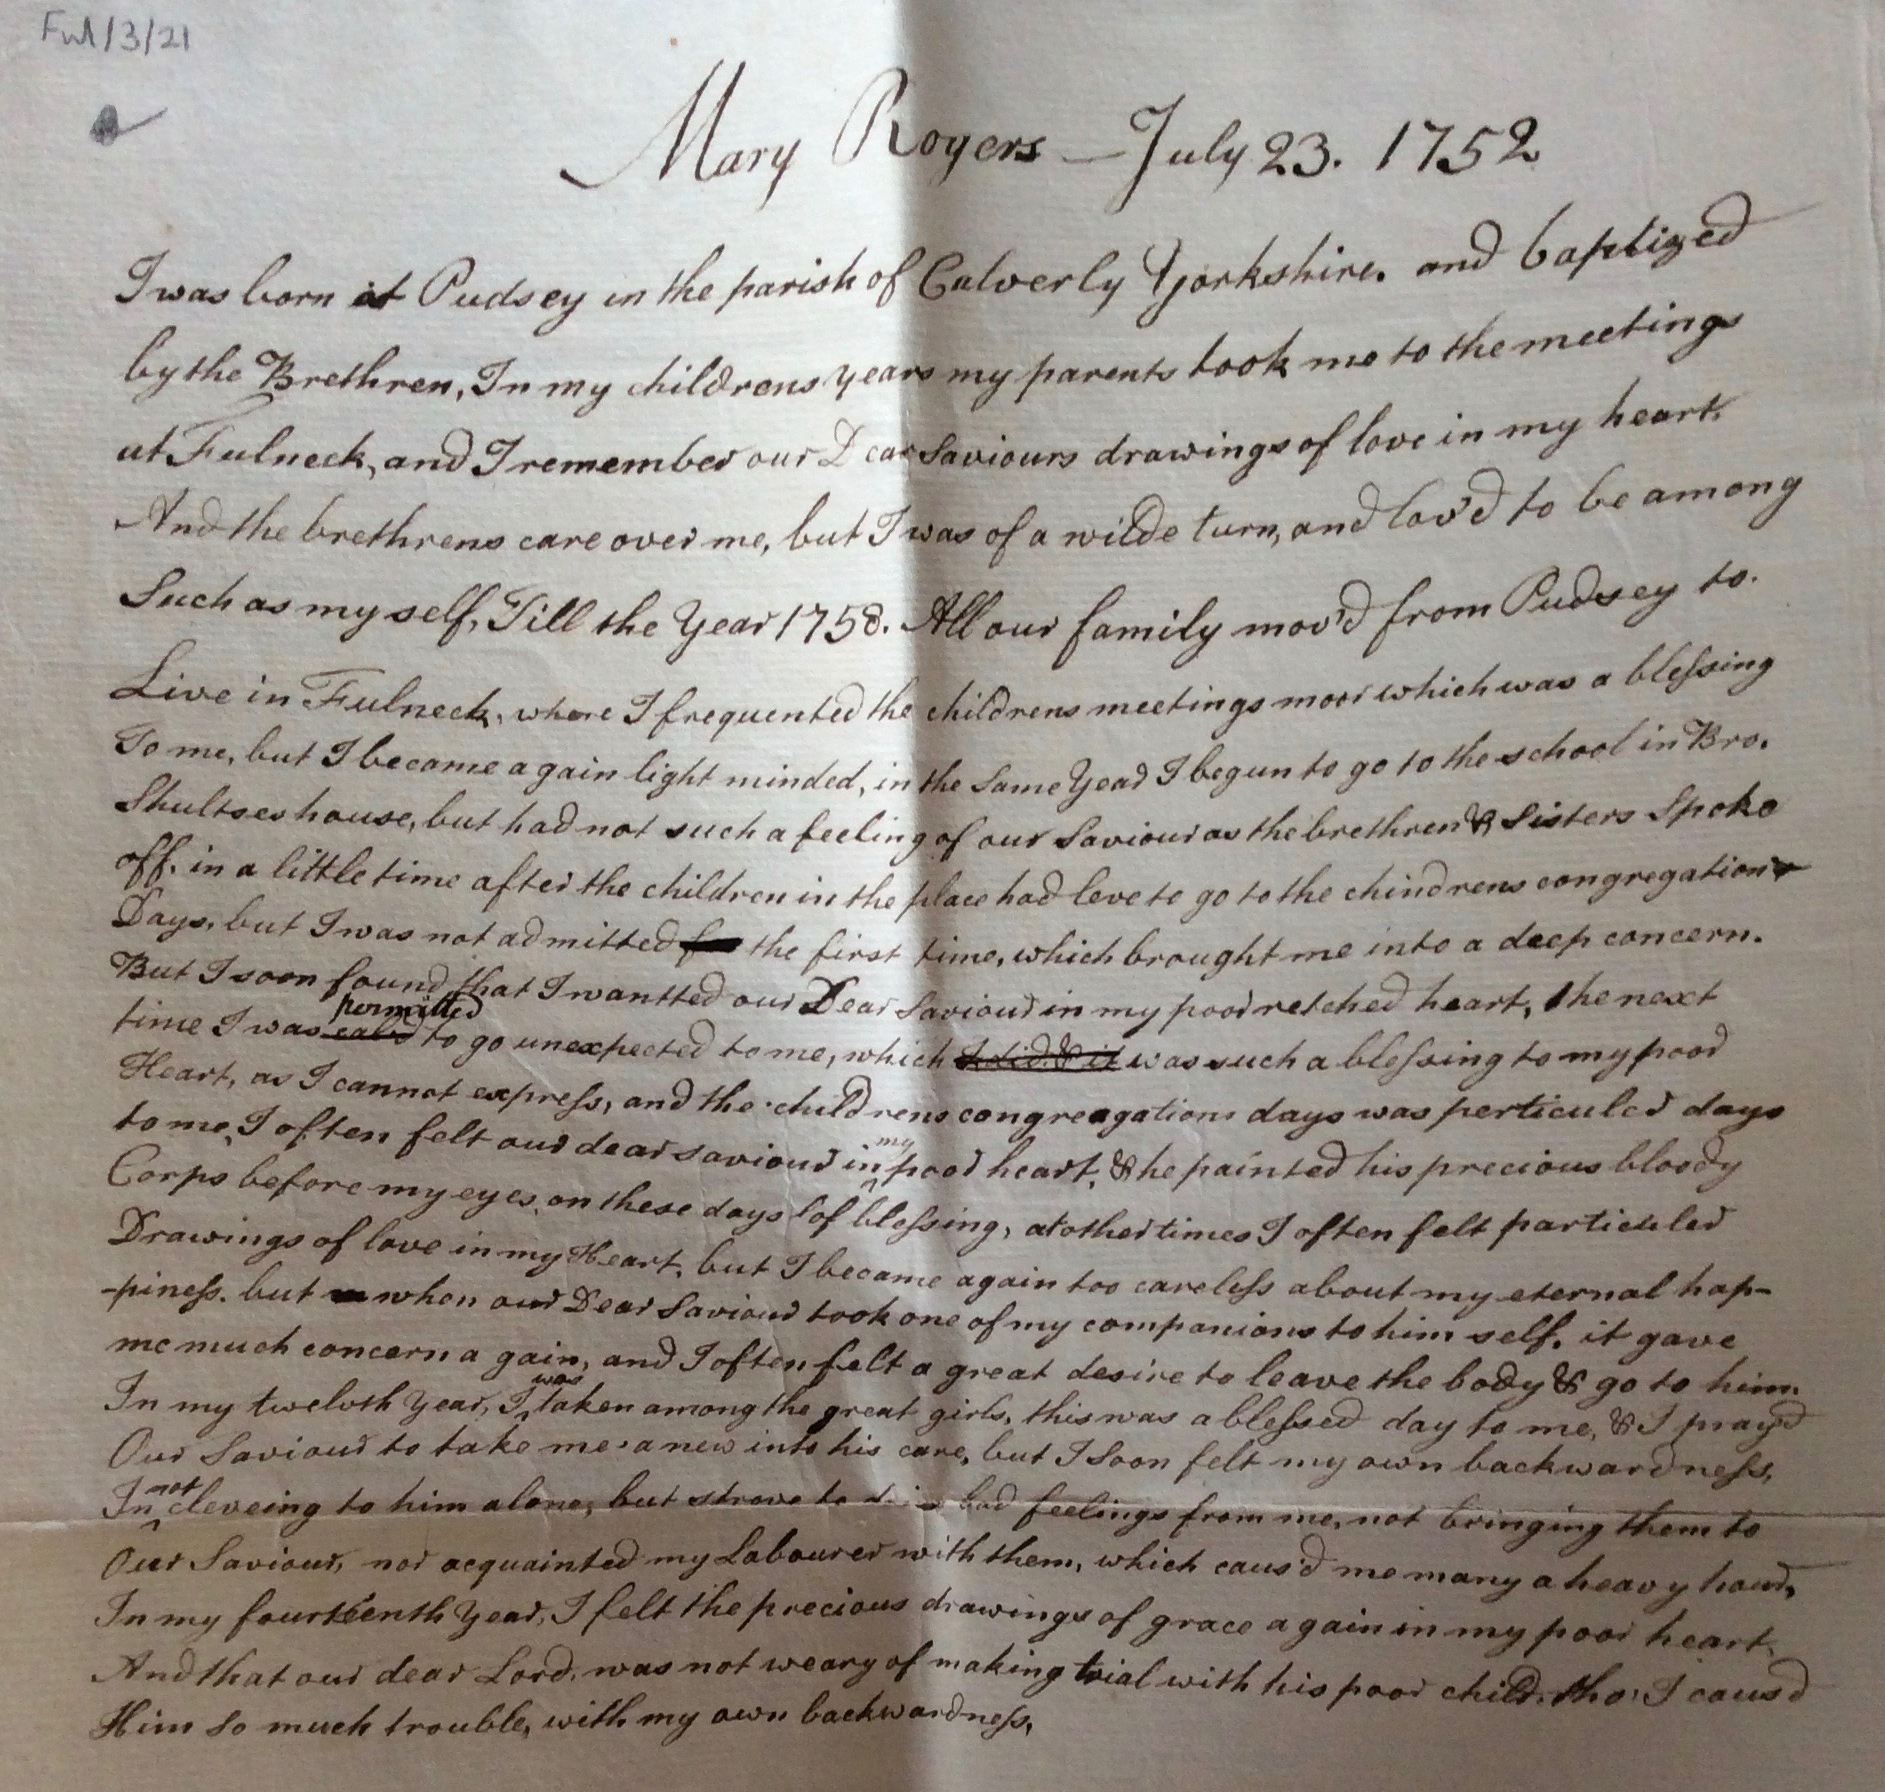 Ful/3/21
Mary Rogers — July 23. 1752
I was born at Pudsey in the parish of Calverly Yorkshire. and baptized
by the Brethren, In my childrens years my parents took me to the meetings
at Fulneck, and I remember our Dear Saviours drawings of love in my heart.
And the brethrens care over me, but I was of a wilde turn, and lov'd to be among
Such as my self, Till the Year 1758. All our family mov'd from Pudsey to.
Live in Fulneck, where I frequented the childrens meetings moor which was a blessing
To me, but I became again light minded, in the Same Year I begun to go to the school in Bro.
Shultses house, but had not such a feeling of our Saviour as the brethren & Sisters Spoke
off. in a little time after the children in the place had leve to go to the chindrens congregation
Days, but I was not admitted the first time, which brought me into a deep concern.
But I soon found that I wantted our Dear Saviour in my poor retched heart, the next
time I was cal'd permitted to go unexpected to me, which I did & it was such a blessing to my poor
Heart, as I cannot express, and the childrens congreagations days was perticuler days
to me, I often felt our dear saviour in my poor heart, & he painted his precious bloody
Corps before my eyes, on these days of blessing, at other times I often felt particuler
Drawings of love in my Heart, but I became again too careless about my eternal hap-
-piness. but when our Dear Saviour took one of my companions to him self, it gave
me much concern a gain, and I often felt a great desire to leave the body & go to him.
In my twelvth Year, I was taken among the great girls, this was a blessed day to me, & I pray'd
Our Saviour to take me a new into his care, but I Soon felt my own backwardness,
In not cleveing to him alone, but strove to bad feelings from me, not bringing them to
Our Saviour, nor acquainted my Labourer with them, which caus'd me many a heavy hour,
In my fourteenth Year, I felt the precious drawings of grace again in my poor heart,
And that our dear Lord, was not weary of making trial with his poor child, tho' I caus'd
Him so much trouble, with my own backwardness,